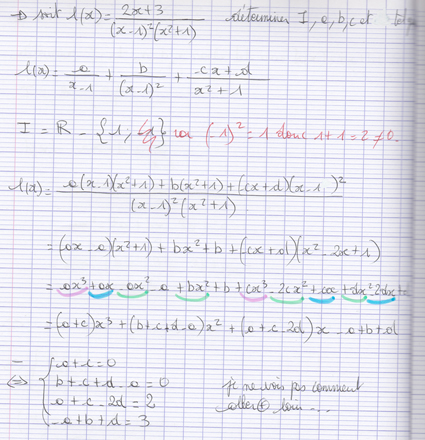 soit l(x) = (2x+3)/((x-1)²(x²+1)) déterminer I, a, b, c et
l(x) = a/(x-1) + b/(x-1)² + (cx+d)/(x²+1)
I = ℝ - {1, } car (-1)² = 1 donc 1+1 = 2 ≠ 0.
l(x) = (a(x-1)(x²+1) + b(x²+1) + (cx+d)(x-1)²)/((x-1)²(x²+1))
= (ax-a)(x²+1) + bx²+b + (cx+d)(x²-2x+1)
= ax³+ax-ax²-a+bx²+b+cx³-2cx²+cx+dx²-2dx+d
= (a+c)x³ + (b+c+d-a)x² + (a+c-2d)x-a+b+d
⇔ { a+c=0
b+c+d-a=0 je ne vois pas comment
a+c-2d=2 aller ⊕ loin ...
-a+b+d=3